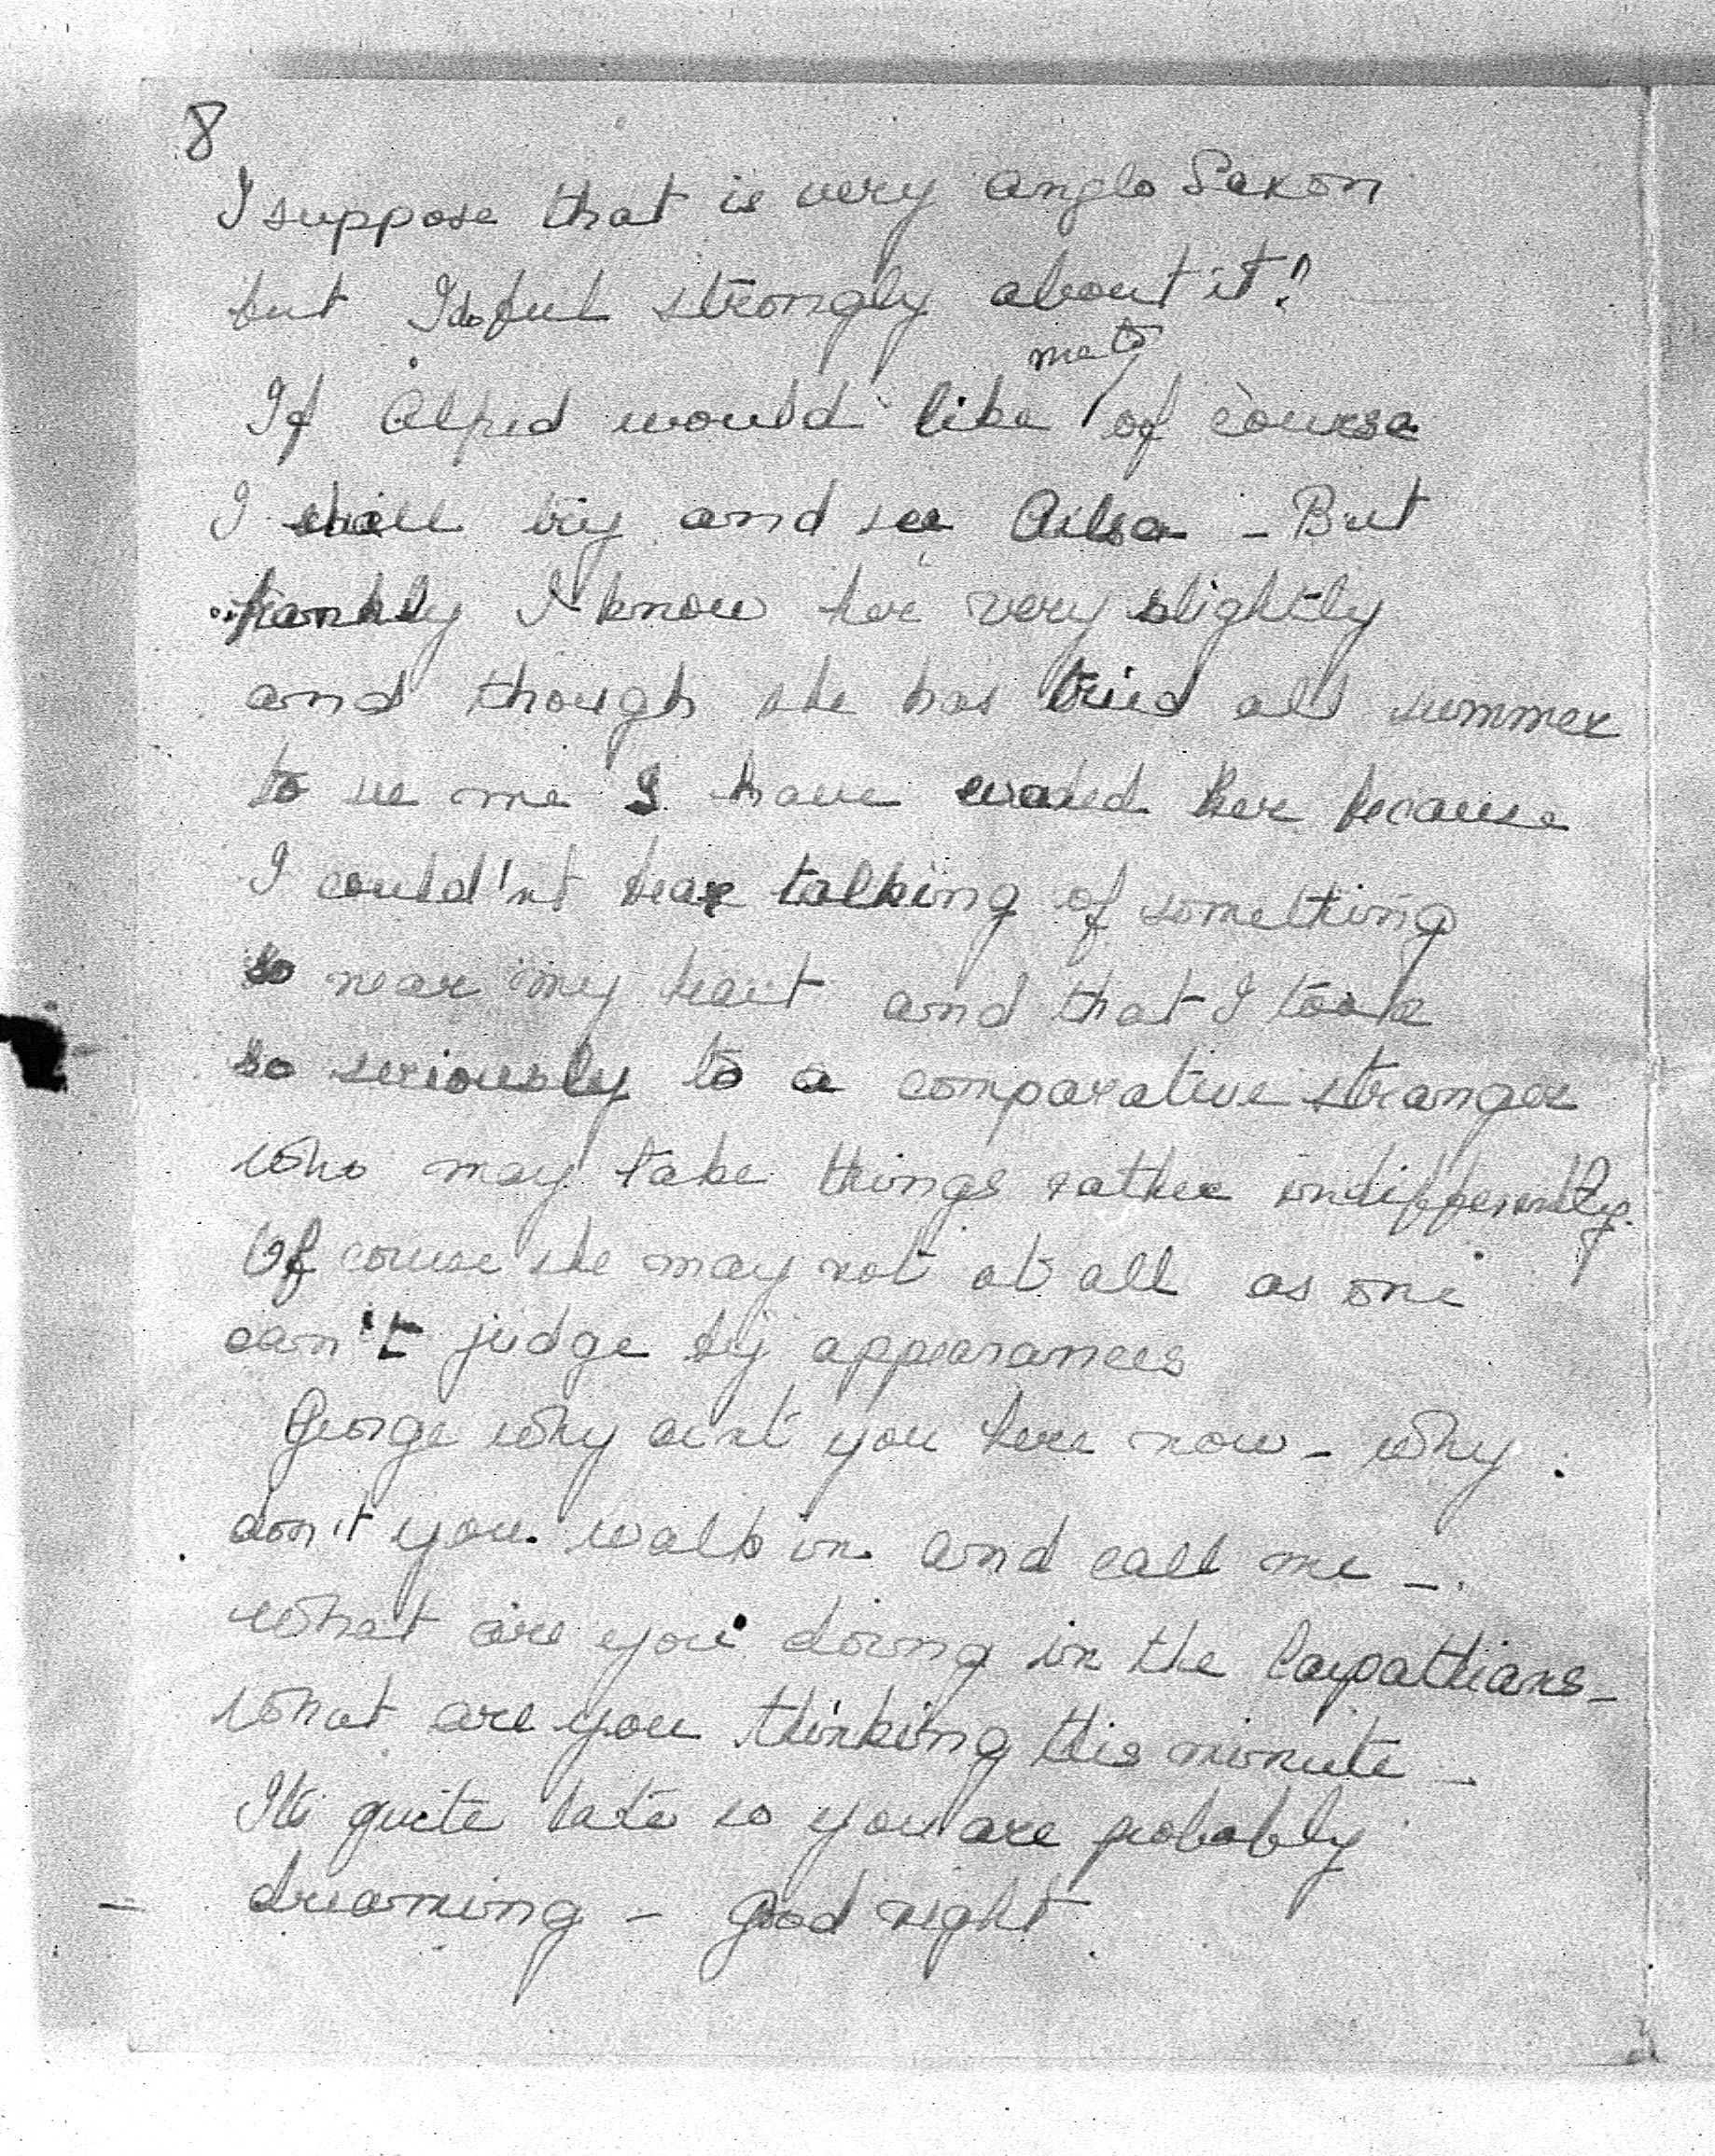 8
I suppose that is very Anglo Saxon
but I do feel strongly about it!
me to
If Alfred would like of course
I shall try and see Ailsa - But
frankly I know her very slightly
and though she has tried all summer
to see me I have evaded her because
I could'nt bear talking of something
so near my heart and that I took
so seriously to a comparative stranger
who may take things rather indifferently.
Of course she may not at all as one
can't judge by appearances
George why aint you here now - why
don't you walk in and call me -
What are you doing in the Carpathians -
What are you thinking this minute -
Its quite late so you are probably
dreaming - good night